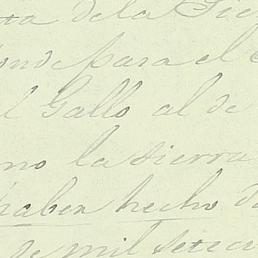 de la
onde para el
l Gallo al de
no la sierra
haber hecho de
de mil sete